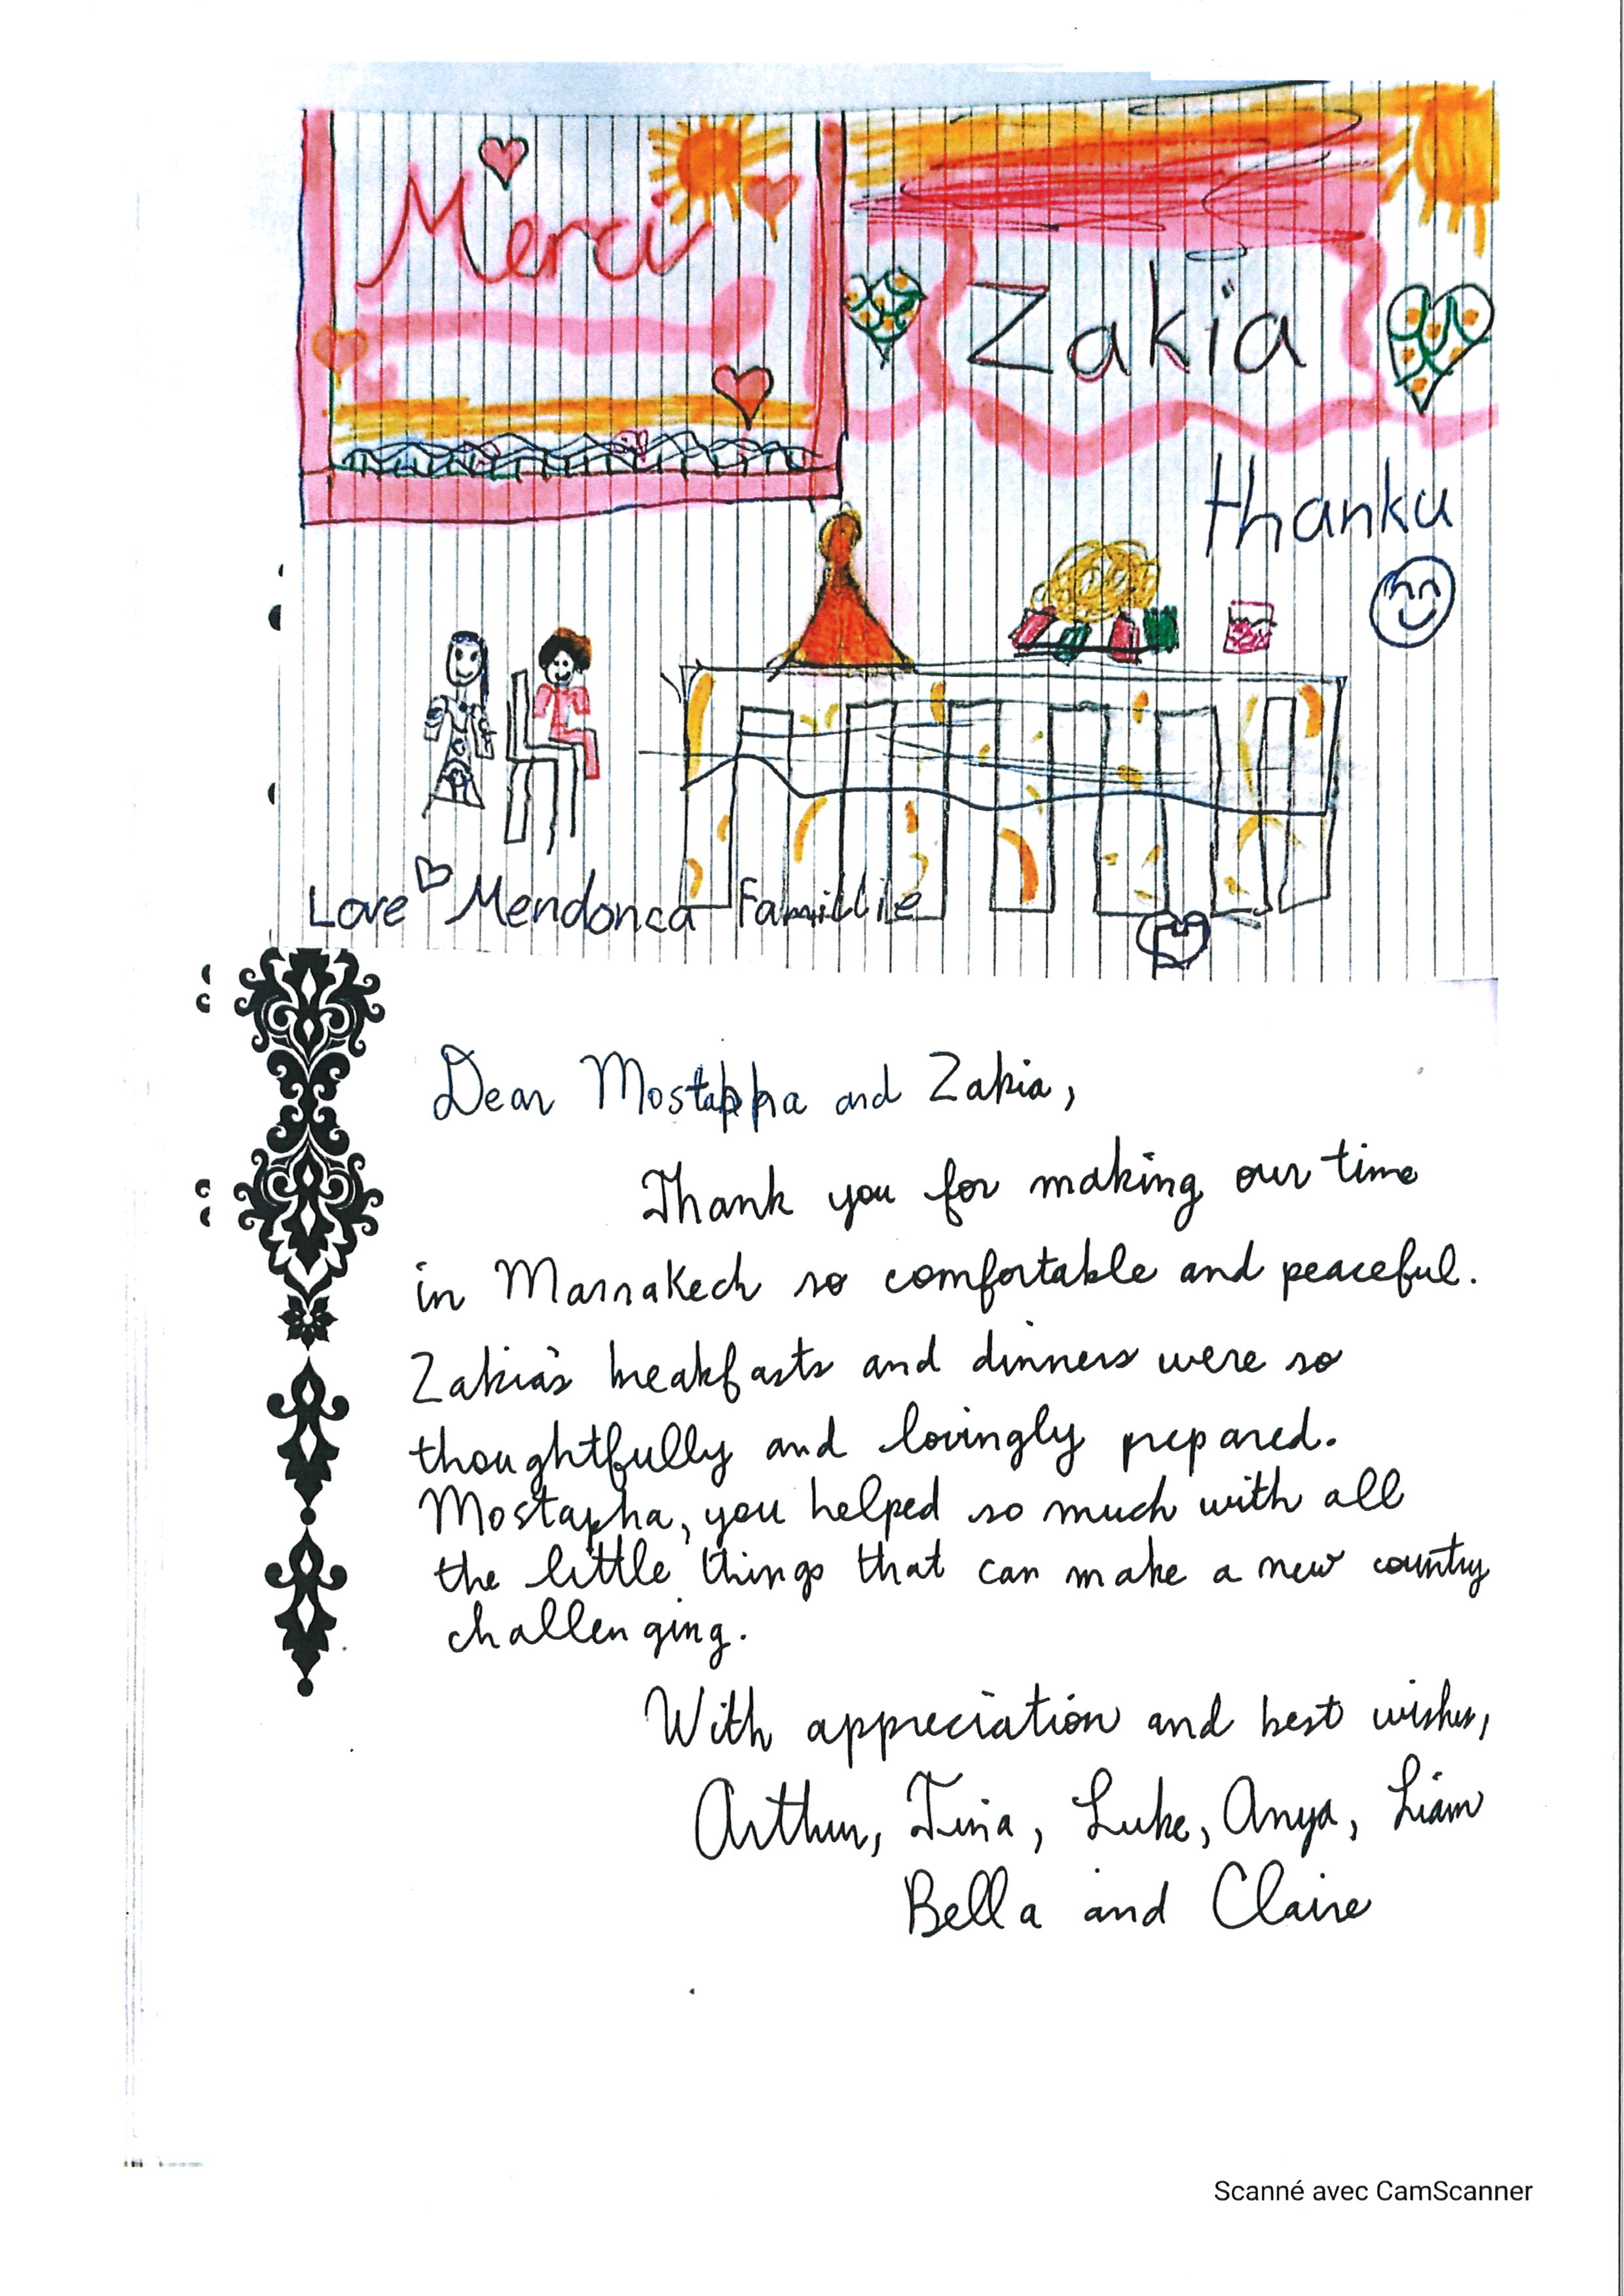 Merci
Zakia
thanku
Love Mendonca Famillie
Dear Mostappha and Zakia,
Thank you for making our time
in Marrakech so comfortable and peaceful.
Zakia's breakfasts and dinners were so
thoughtfully and lovingly prepared.
Mostapha, you helped so much with all
the little things that can make a new country
challenging.
With appreciation and best wishes,
Arthur, Tina, Luke, Anya, Liam
Bella and Claire
Scanné avec CamScanner